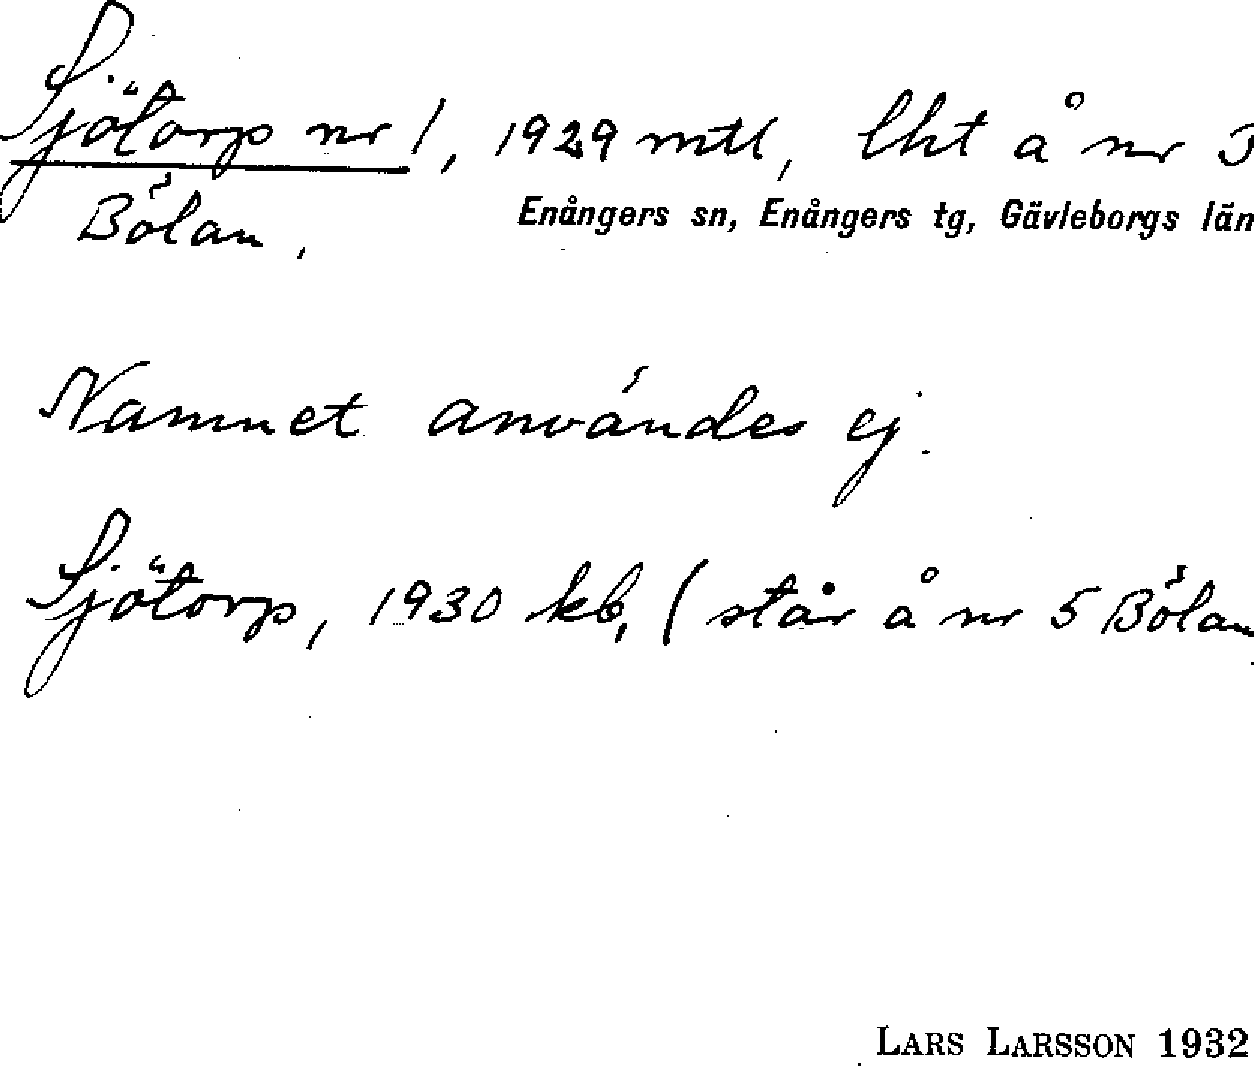 Sjötorp nr 1, 1929 mtl, lht å nr 5
Bölan,
Enångers sn, Enångers tg, Gävleborgs län
Namnet användes ej.
Sjötorp, 1930 kb, (står å nr 5 Bölan
LARS LARSSON 1932